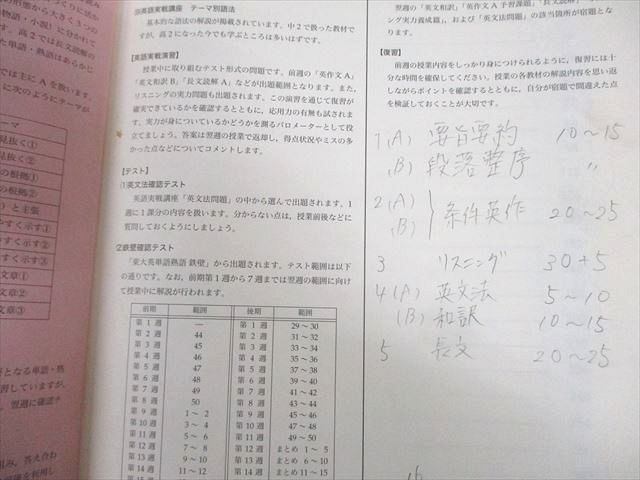 ⑤英語実戦講座 テーマ別語法
基本的な語法の解説が掲載されています。中2で扱った教材で
すが、高2になった今でも学ぶところは多いはずです。
【英語実戦演習】
授業中に取り組むテスト形式の問題です。前週の「英作文A」
「英文和訳B」「長文読解A」などが出題範囲となります。また、
リスニングの実力問題も出題されます。この演習を通じて復習が
確実できているかを確認するとともに、応用力の有無も試されま
す。実力が身についているかどうかを測るバロメーターとして役
立てましょう。答案は翌週の授業で返却し、得点状況やミスの多
かった点などについてコメントします。
【テスト】
⑴英文法確認テスト
英語実戦講座「英文法問題」の中から選んで出題されます。1
週に1課分の内容を扱います。分からない点は、授業前後などに
質問しておくようにしましょう。
②鉄壁確認テスト
「東大英単語熟語 鉄壁」から出題されます。テスト範囲は以下
の通りです。なお、前期第1週から7週までは翌週の範囲に向け
て授業中に解説が行われます。
前期 範囲 後期 範囲
第1週 — 第1週 29～30
第2週 44 第2週 31～32
第3週 45 第3週 33～34
第4週 46 第4週 35～36
第5週 47 第5週 37～38
第6週 48 第6週 39～40
第7週 49 第7週 41～42
第8週 50 第8週 43～44
第9週 1～2 第9週 45～46
第10週 3～4 第10週 47～48
第11週 5～6 第11週 49～50
第12週 7～8 第12週 まとめ 1～5
第13週 9～10 第13週 まとめ 6～10
第14週 11～12 第14週 まとめ 11～15
翌週の「英文和訳」「英作文A予習課題」「長文読解」
ング実力養成篇」、および「英文法問題」の該当箇所が宿題とな
ります。
【復習】
前週の授業内容をしっかり身につけられるように、復習には十
分な時間を確保してください。授業の各教材の解説内容を思い返
しながらポイントを確認するとともに、自分が宿題で間違えた点
を検証しておくことが大切です。
1(A) 要旨要約 10～15
(B) 段落整序 〃
2(A)
(B) 条件英作 20～25
3 リスニング 30+5
4(A) 英文法 5～10
(B) 和訳 10～15
5 長文 20～25